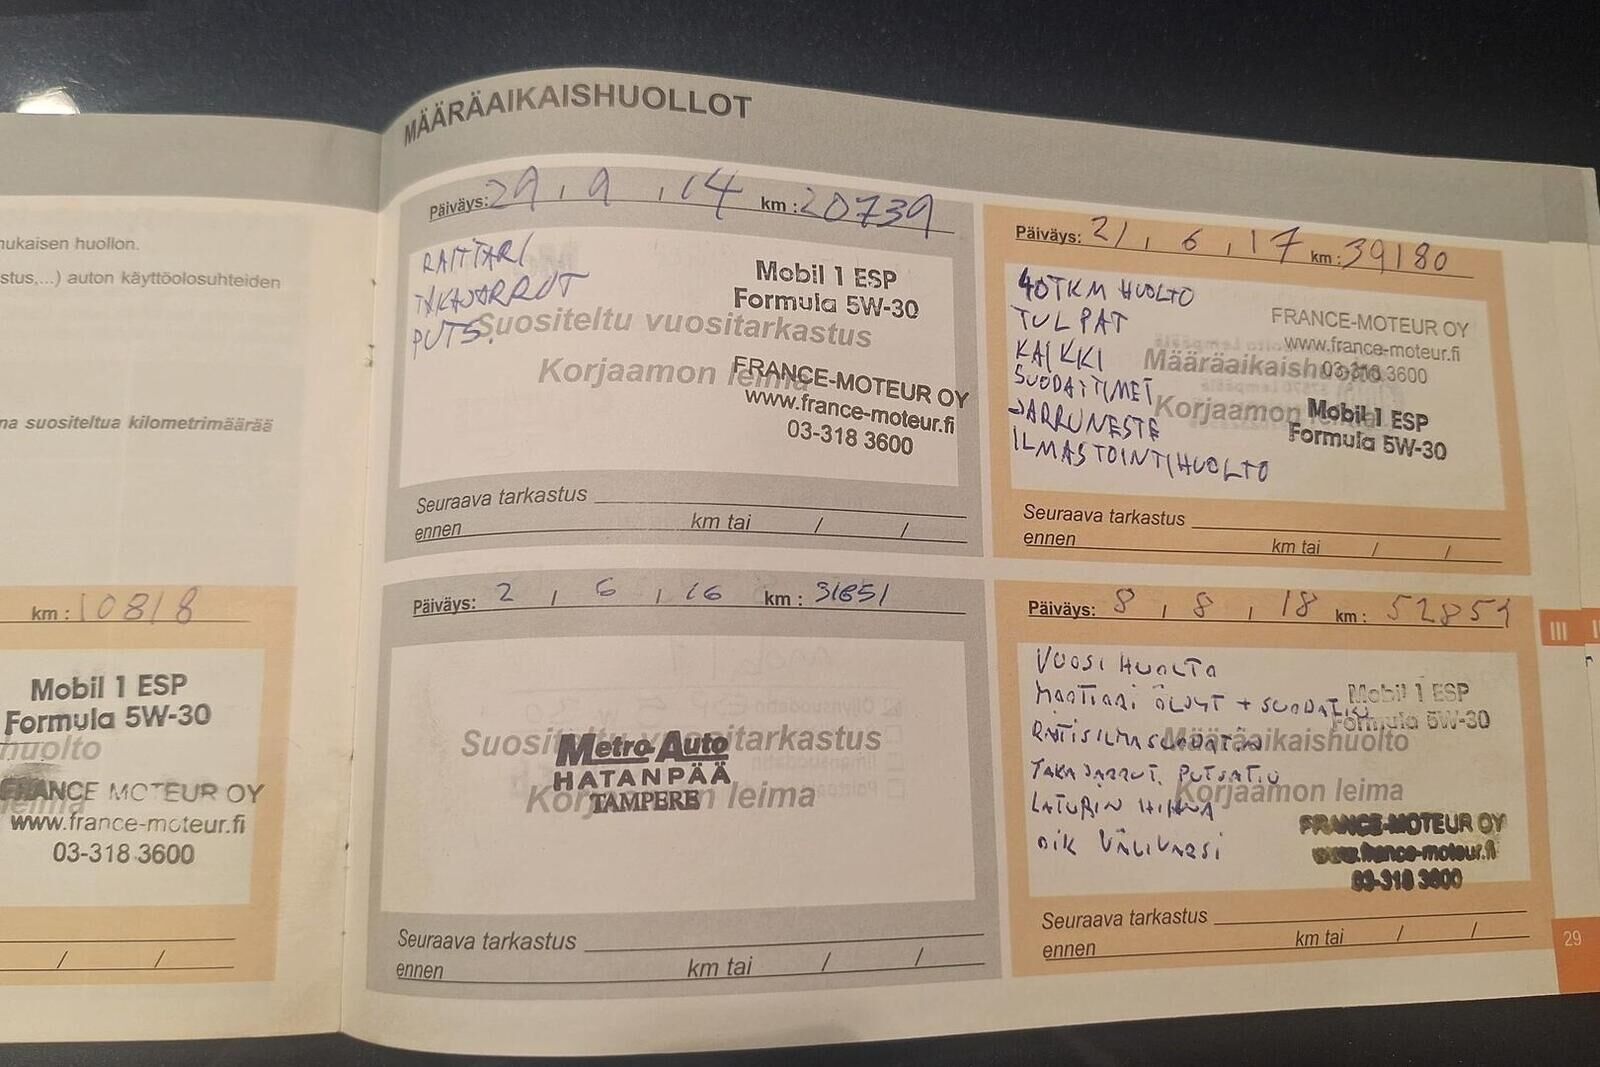 nukaisen huollon.
stus,...) auton käyttöolosuhteiden
na suositeltua kilometrimäärää
km : 10818
Mobil 1 ESP
Formula 5W-30
huolto
FRANCE MOTEUR OY
leima
www.france-moteur.fi
03-318 3600
/ /
MÄÄRÄAIKAISHUOLLOT
Päiväys: 29 , 9 , 14 km : 20739
RAITTARI
TAKAJARRUT
PUTS.
Mobil 1 ESP
Formula 5W-30
Suositeltu vuositarkastus
Korjaamon leima
FRANCE-MOTEUR OY
www.france-moteur.fi
03-318 3600
Seuraava tarkastus
ennen km tai / /
Päiväys: 21 , 6 , 17 km : 39180
40TKM HUOLTO
TULPAT
KAIKKI
SUODATTIMET
JARRUNESTE
ILMASTOINTIHUOLTO
FRANCE-MOTEUR OY
www.france-moteur.fi
Määräaikaishuolto
03-318 3600
Korjaamon
Mobil 1 ESP
Formula 5W-30
Seuraava tarkastus
ennen km tai / /
Päiväys: 2 , 6 , 16 km : 31851
Suositeltu vuositarkastus
Metro Auto
HATANPÄÄ
Korjaamon leima
TAMPERE
Seuraava tarkastus
ennen km tai / /
Päiväys: 8 , 8 , 18 km : 52851
VUOSI HUOLTO
MOOTTORI ÖLJYT + SUODATIN
RAITISILMASUODATIN
TAKAJARRUT PUTSATTU
LATURIN HIHNA
OIK VÄLIVARSI
Mobil 1 ESP
Formula 5W-30
Määräaikaishuolto
Korjaamon leima
FRANCE-MOTEUR OY
www.france-moteur.fi
03-318 3600
Seuraava tarkastus
ennen km tai / /
III
29